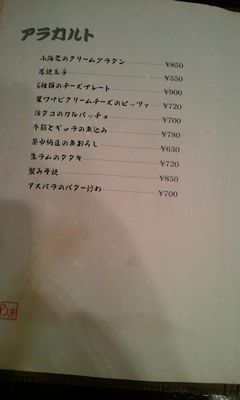 アラカルト
小海老のクリームグラタン ¥850
尾焼玉子 ¥550
6種類のチーズプレート ¥900
葉ワサビクリームチーズのピッツァ ¥720
活タコのカルパッチョ ¥700
牛筋とギャラの煮込み ¥780
茶巾納豆の魚おろし ¥630
生ラムのタタキ ¥720
蟹みそ焼 ¥850
アスパラのバター炒め ¥700